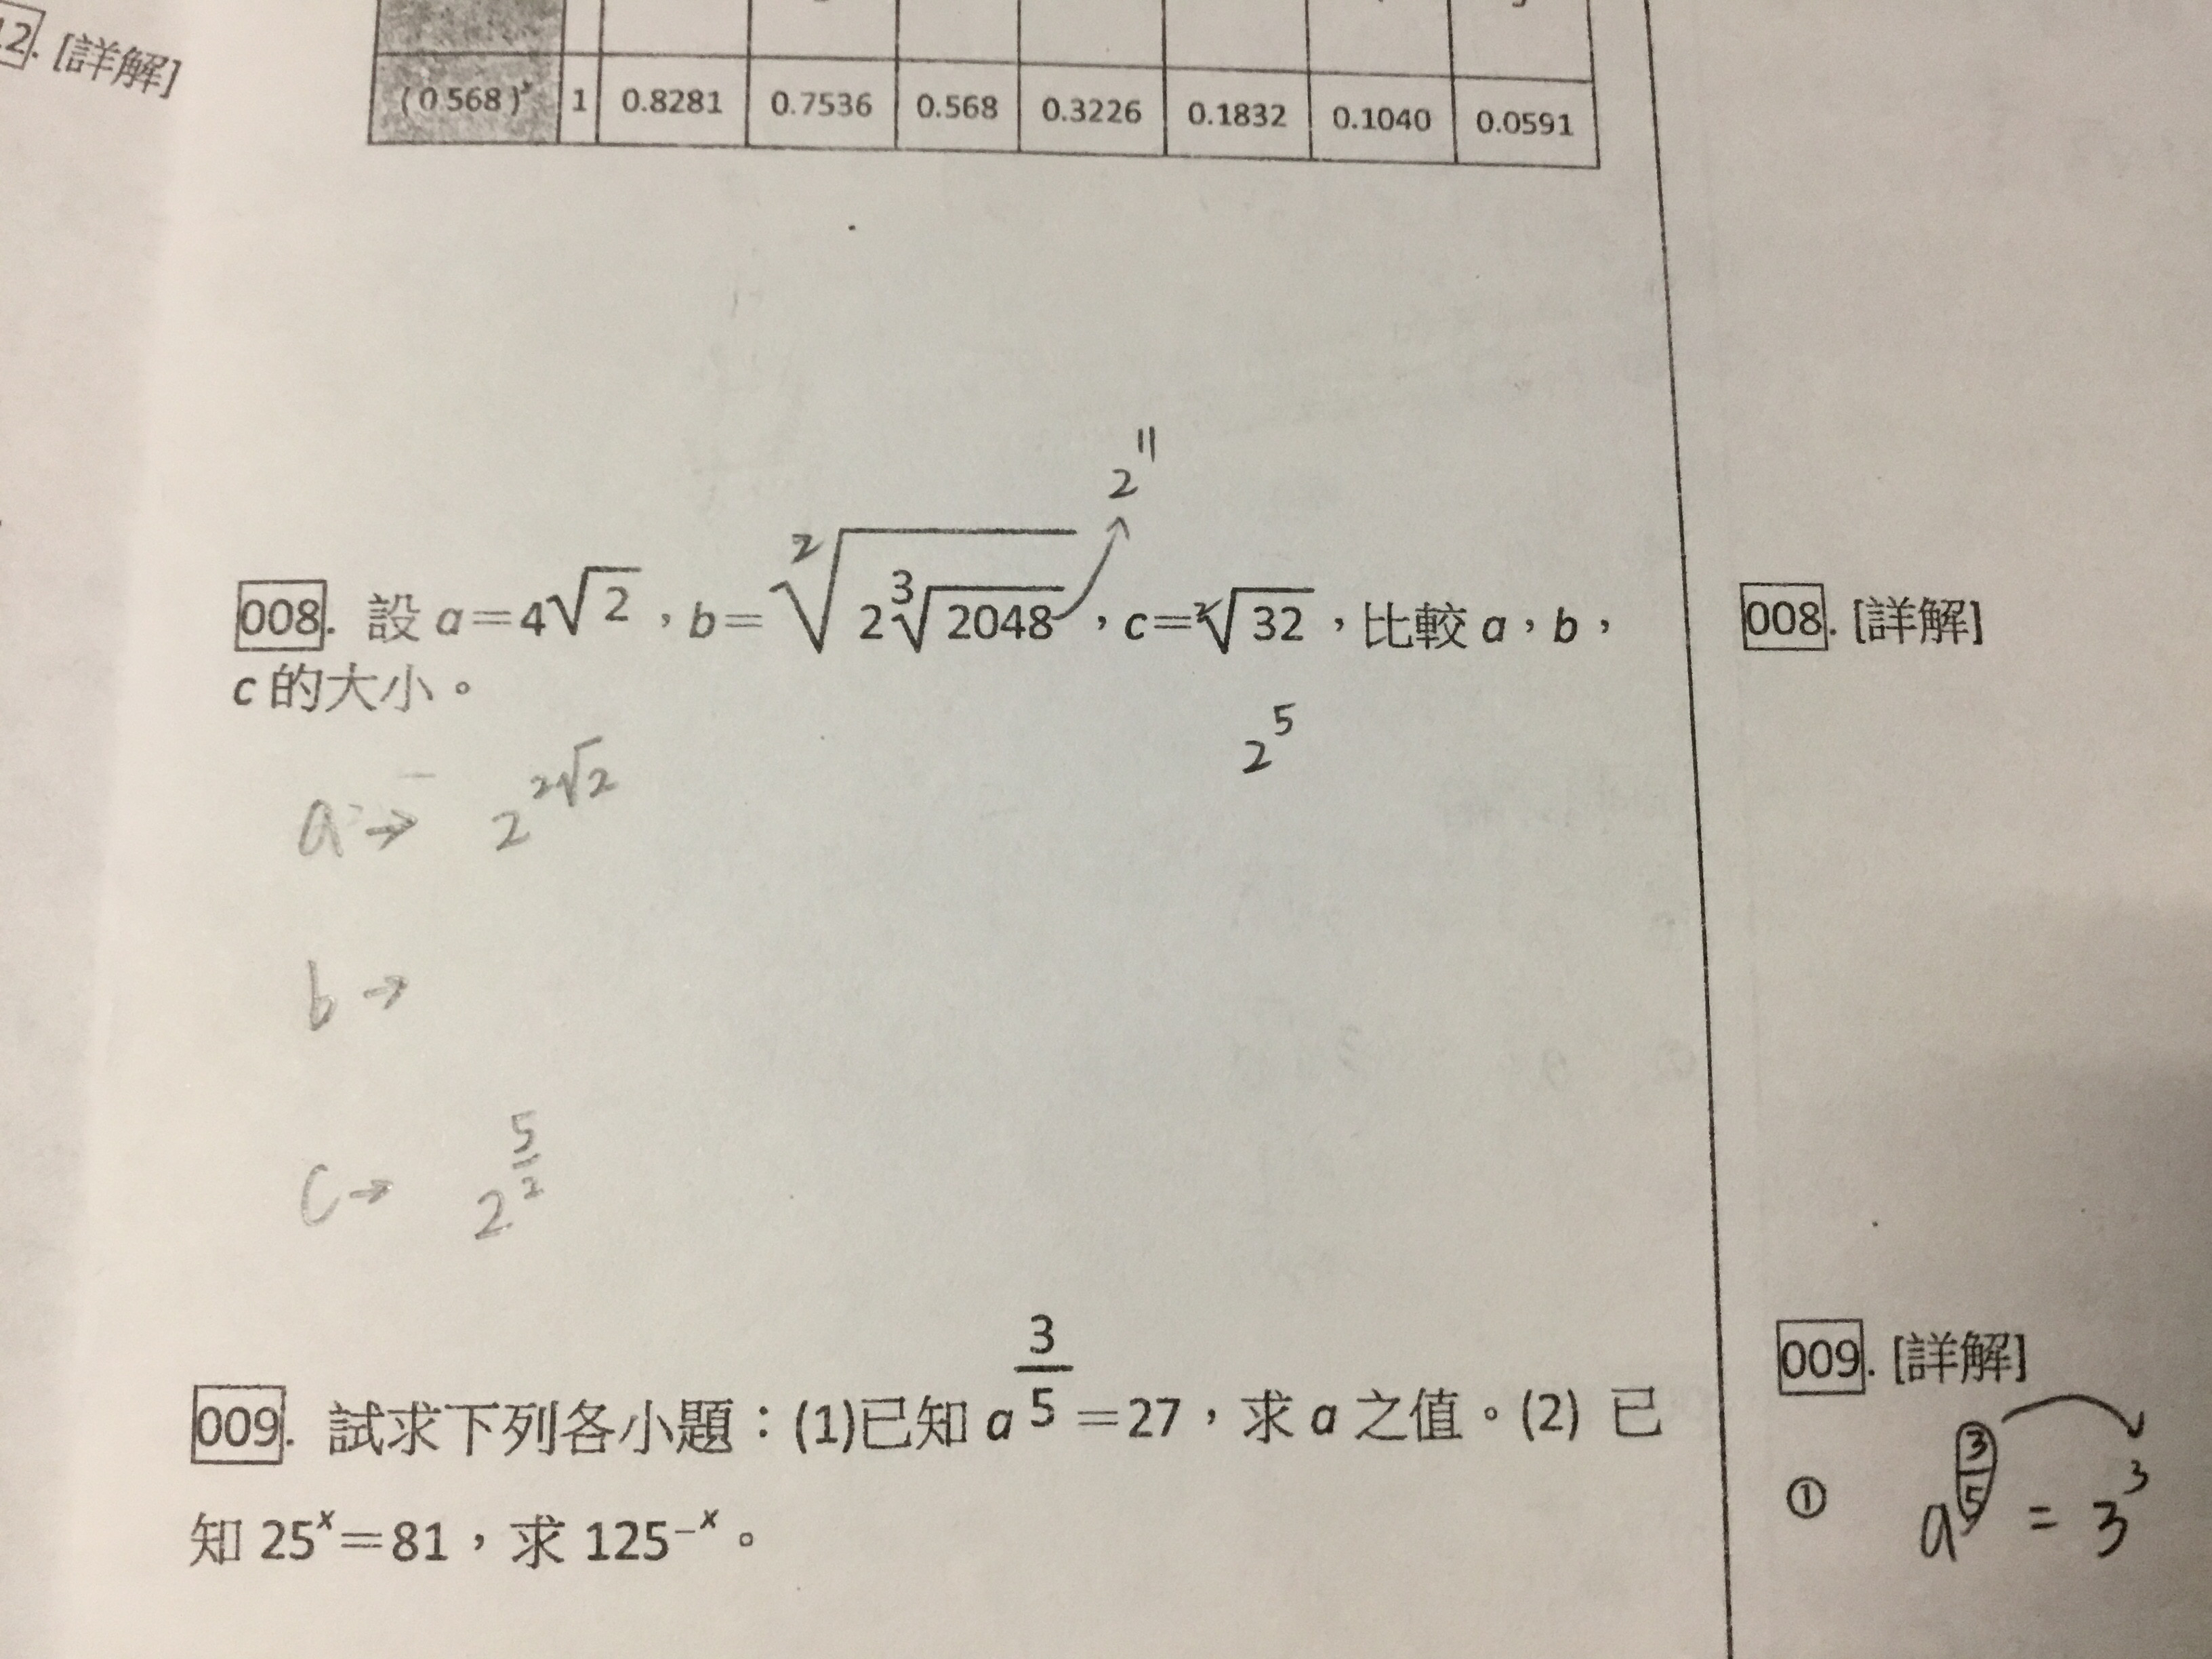 12. [詳解]
(0.568)ˣ 1 0.8281 0.7536 0.568 0.3226 0.1832 0.1040 0.0591
2¹¹
008. 設 a=4^√2，b=²√(2³√2048)，c=²√32，比較 a，b，
c 的大小。
2⁵
a→ 2^(2√2)
b→
c→ 2^(5/2)
008. [詳解]
009. 試求下列各小題：(1)已知 a^(3/5)=27，求 a 之值。(2) 已
知 25ˣ=81，求 125⁻ˣ。
009. [詳解]
① a^(3/5) = 3³